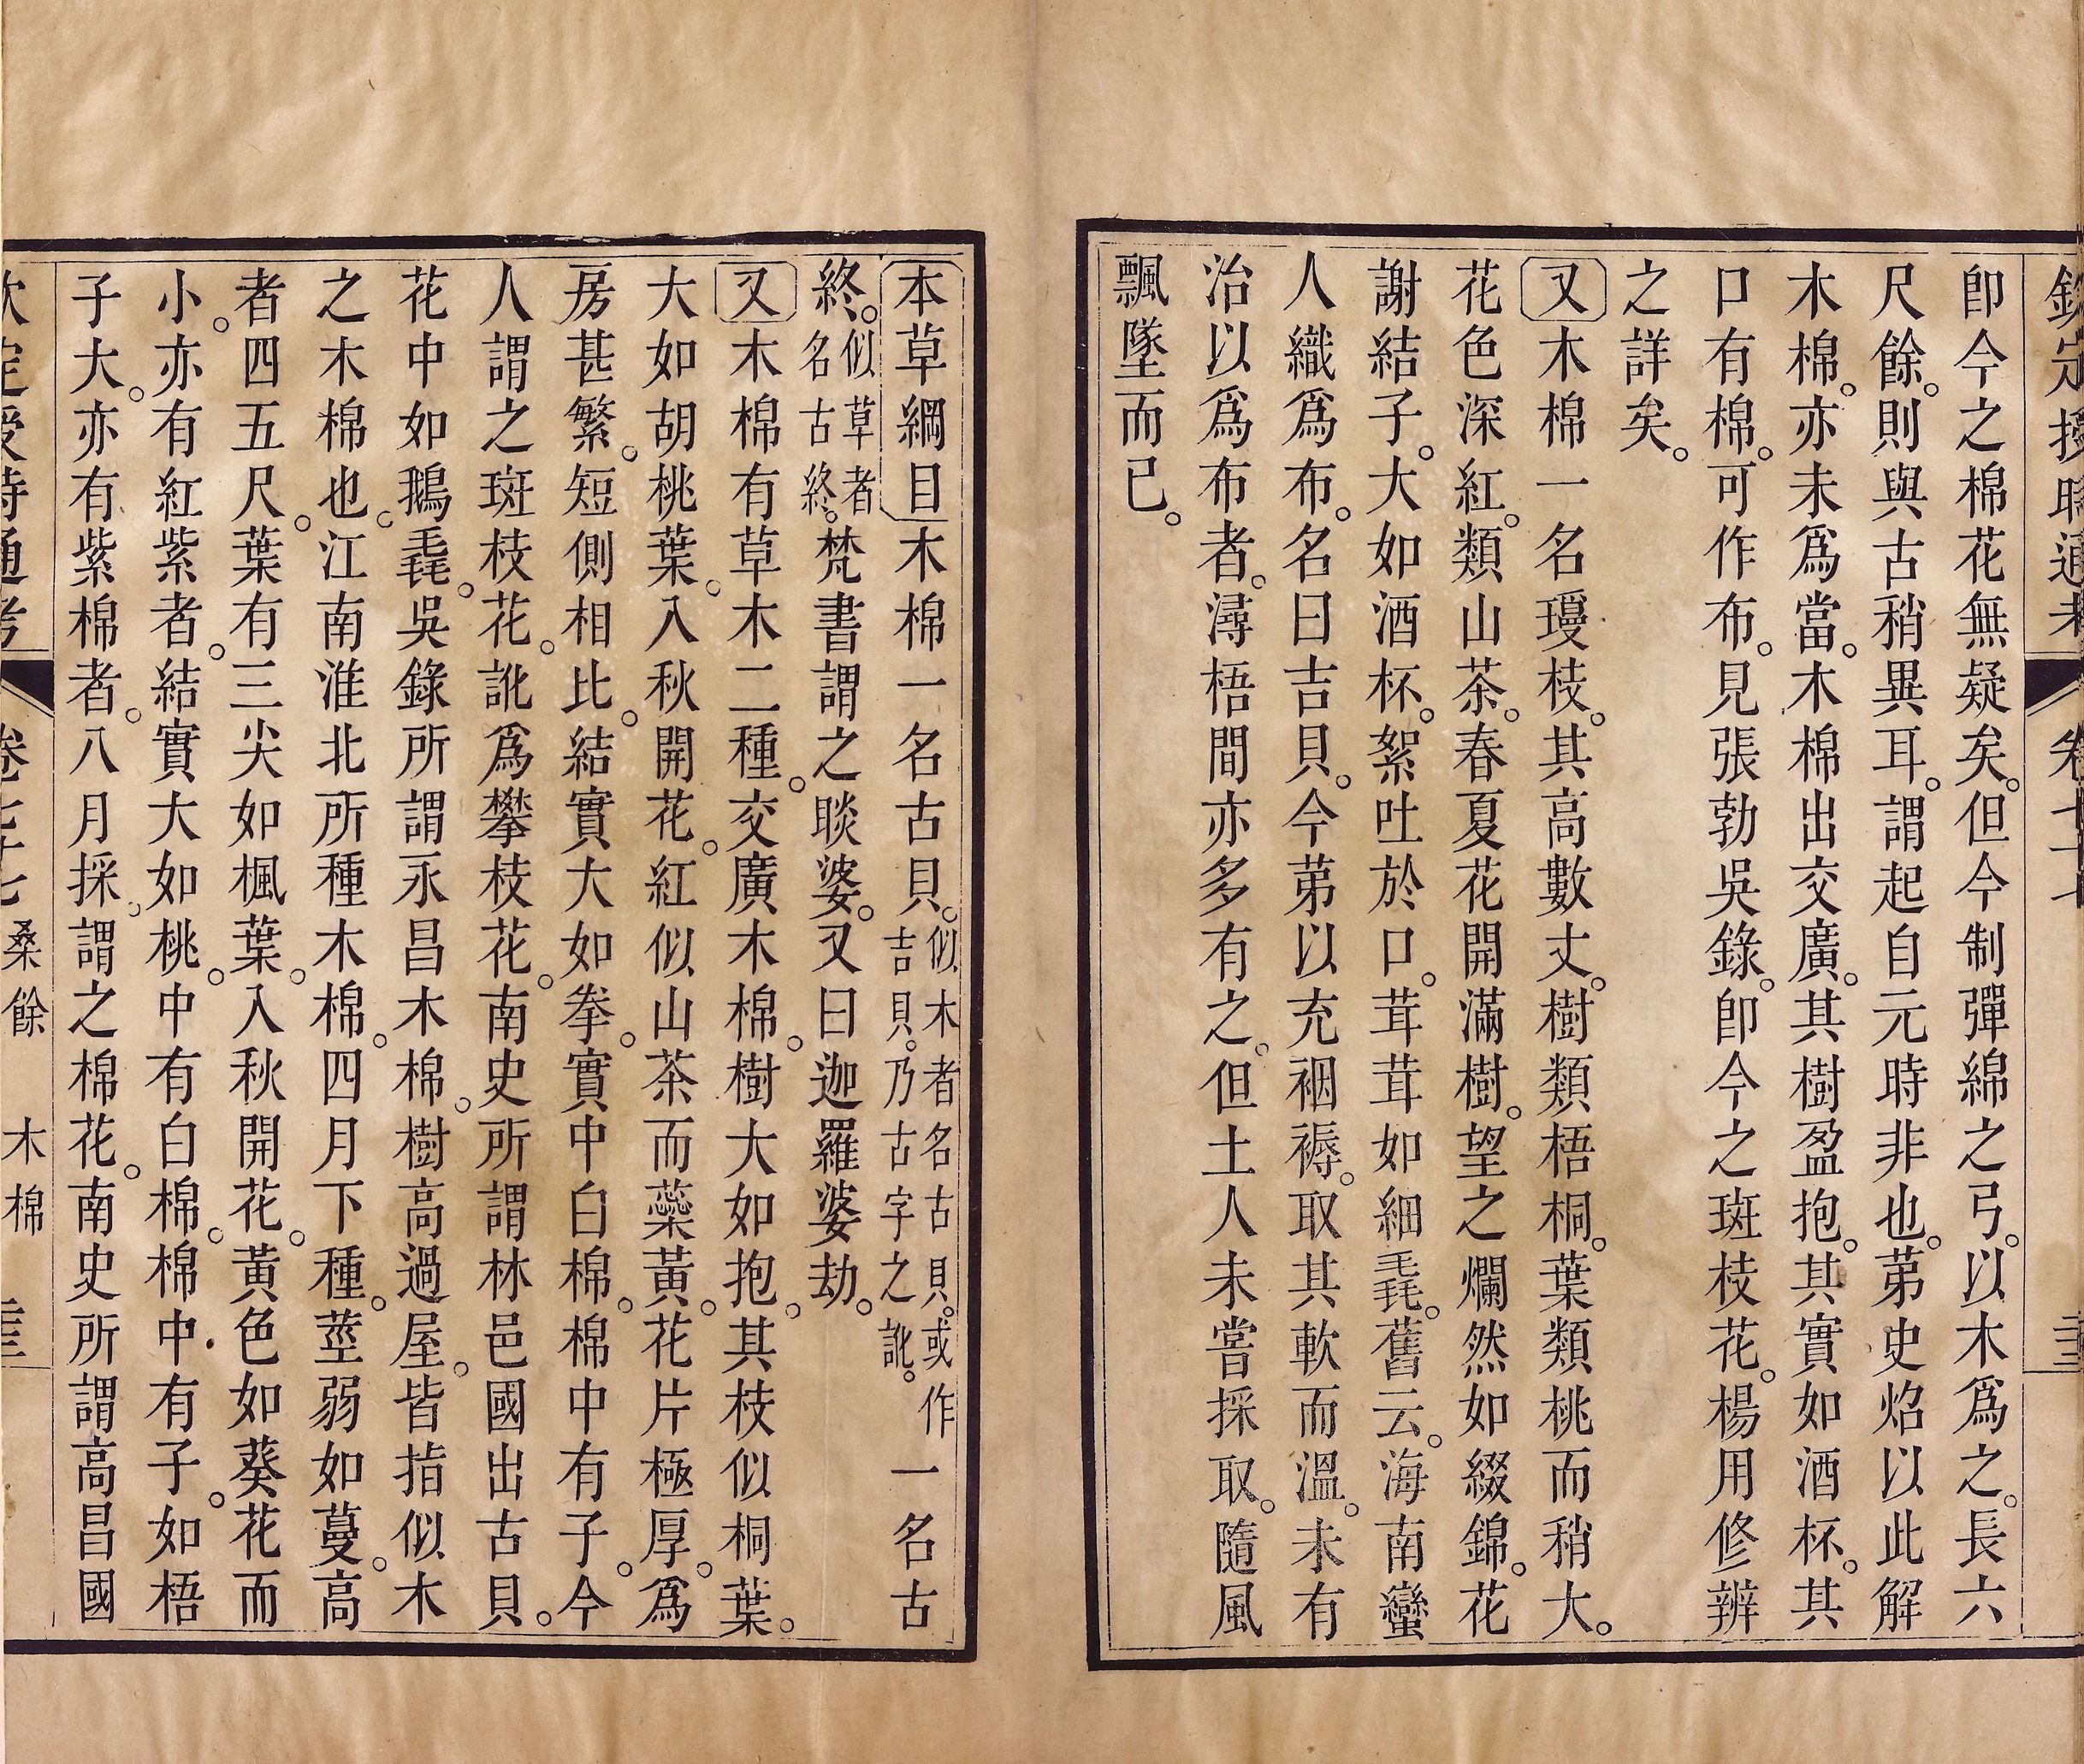 欽定授時通考 卷七十七
卽今之棉花無疑矣。但今制彈綿之弓。以木爲之。長六
尺餘。則與古稍異耳。謂起自元時非也。第史炤以此解
木棉。亦未爲當。木棉出交廣。其樹盈抱。其實如酒杯。其
口有棉。可作布。見張勃吳錄。卽今之斑枝花。楊用修辨
之詳矣。
又木棉一名㻴枝。其高數丈。樹類梧桐。葉類桃而稍大。
花色深紅。類山茶。春夏花開滿樹。望之爛然如綴錦。花
謝結子。大如酒杯。絮吐於口。茸茸如細毳。舊云。海南蠻
人織爲布。名曰吉貝。今第以充裀褥。取其軟而溫。未有
治以爲布者。潯梧間亦多有之。但土人未嘗採取。隨風
飄墜而已。
本草綱目木棉一名古貝。似木者名古貝。或作吉貝。乃古字之訛。一名古
終。似草者名古終。梵書謂之睒婆。又曰迦羅婆劫。
又木棉有草木二種。交廣木棉。樹大如抱。其枝似桐葉。
大如胡桃葉。入秋開花。紅似山茶而蘂黃。花片極厚。爲
房甚繁。短側相比。結實大如拳。實中白棉。棉中有子。今
人謂之斑枝花。訛爲攀枝花。南史所謂林邑國出古貝。
花中如鵝毳。吳錄所謂永昌木棉。樹高過屋。皆指似木
之木棉也。江南淮北所種木棉。四月下種。莖弱如蔓。高
者四五尺。葉有三尖如楓葉。入秋開花。黃色如葵花而
小。亦有紅紫者。結實大如桃。中有白棉。棉中有子。如梧
子大。亦有紫棉者。八月採。謂之棉花。南史所謂高昌國
欽定授時通考 卷七十七 桑餘 木棉